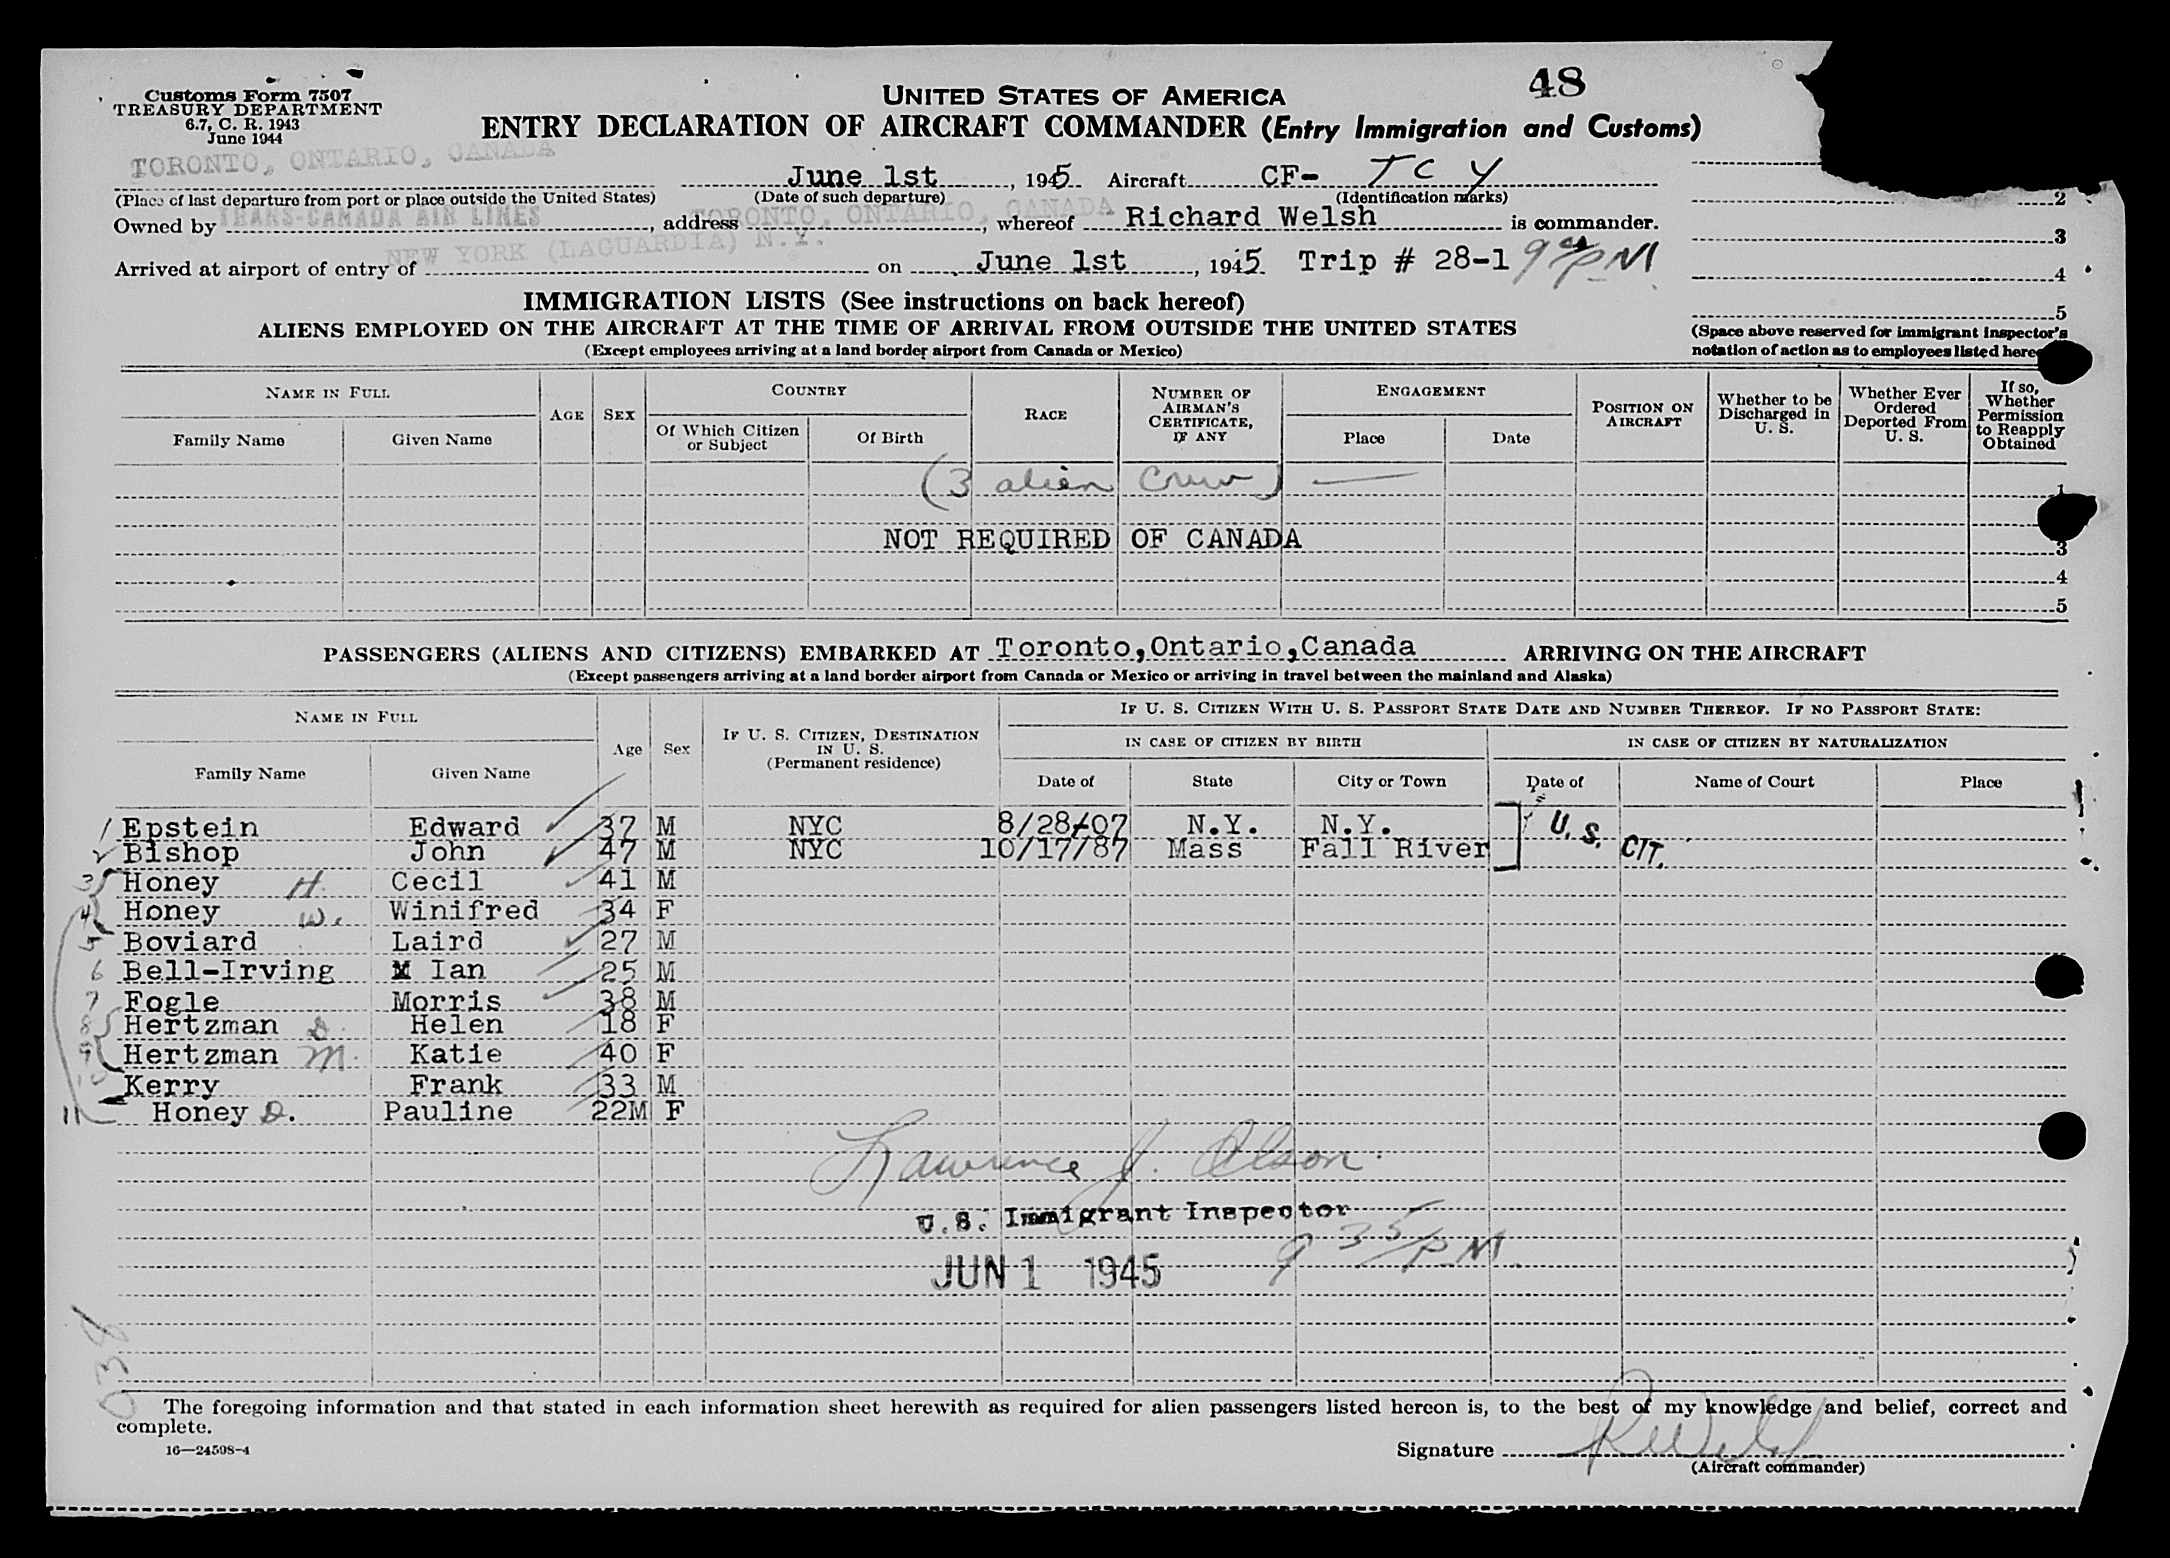 48
Customs Form 7507
TREASURY DEPARTMENT
6.7, C. R. 1943
June 1944
UNITED STATES OF AMERICA
ENTRY DECLARATION OF AIRCRAFT COMMANDER (Entry Immigration and Customs)
TORONTO, ONTARIO, CANADA June 1st, 1945 Aircraft CF- TCY
(Place of last departure from port or place outside the United States) (Date of such departure) (Identification marks)
Owned by TRANS-CANADA AIR LINES, address TORONTO, ONTARIO, CANADA, whereof Richard Welsh is commander.
Arrived at airport of entry of NEW YORK (LAGUARDIA) N.Y. on June 1st, 1945 Trip # 28-1 9 PM
2
3
4
5
(Space above reserved for immigrant inspector's
notation of action as to employees listed
IMMIGRATION LISTS (See instructions on back hereof)
ALIENS EMPLOYED ON THE AIRCRAFT AT THE TIME OF ARRIVAL FROM OUTSIDE THE UNITED STATES
(Except employees arriving at a land border airport from Canada or Mexico)
NAME IN FULL
Family Name Given Name
AGE SEX
COUNTRY
Of Which Citizen or Subject Of Birth
RACE
NUMBER OF AIRMAN'S CERTIFICATE, IF ANY
ENGAGEMENT
Place Date
POSITION ON AIRCRAFT
Whether to be Discharged in U. S.
Whether Ever Ordered Deported From U. S.
If so, Whether Permission to Reapply Obtained
(3 alien Crew) — 1
NOT REQUIRED OF CANADA 3
4
5
PASSENGERS (ALIENS AND CITIZENS) EMBARKED AT Toronto,Ontario,Canada ARRIVING ON THE AIRCRAFT
(Except passengers arriving at a land border airport from Canada or Mexico or arriving in travel between the mainland and Alaska)
NAME IN FULL
Family Name Given Name
Age Sex
IF U. S. CITIZEN, DESTINATION IN U. S.
(Permanent residence)
IF U. S. CITIZEN WITH U. S. PASSPORT STATE DATE AND NUMBER THEREOF. IF NO PASSPORT STATE:
IN CASE OF CITIZEN BY BIRTH IN CASE OF CITIZEN BY NATURALIZATION
Date of State City or Town Date of Name of Court Place
1 Epstein Edward 37 M NYC 8/28/07 N.Y. N.Y. U.S. CIT.
2 Bishop John 47 M NYC 10/17/87 Mass Fall River
3 Honey H. Cecil 41 M
4 Honey W. Winifred 34 F
5 Boviard Laird 27 M
6 Bell-Irving Ian 25 M
7 Fogle Morris 38 M
8 Hertzman D. Helen 18 F
9 Hertzman M. Katie 40 F
10 Kerry Frank 33 M
11 Honey D. Pauline 22M F
Lawrence J. Olson.
U.S. Immigrant Inspector
JUN 1 1945 9 35/P.M.
038
The foregoing information and that stated in each information sheet herewith as required for alien passengers listed hereon is, to the best of my knowledge and belief, correct and
complete.
16—24598-4
Signature R Welsh
(Aircraft commander)